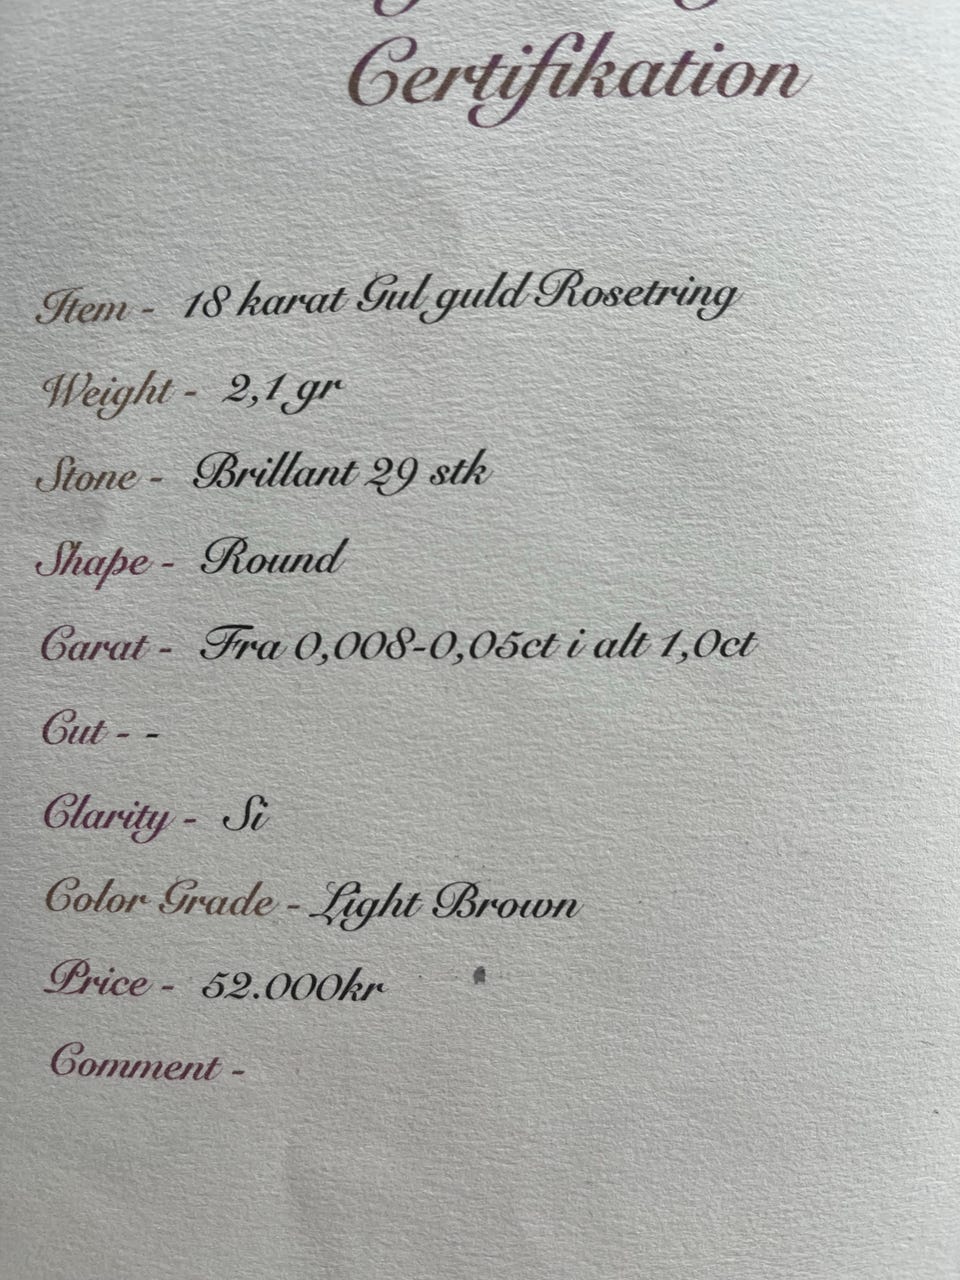 Certifikation
Item - 18 karat Gul guld Rosetring
Weight - 2,1 gr
Stone - Brillant 29 stk
Shape - Round
Carat - Fra 0,008-0,05ct i alt 1,0ct
Cut - -
Clarity - Si
Color Grade - Light Brown
Price - 52.000kr
Comment -